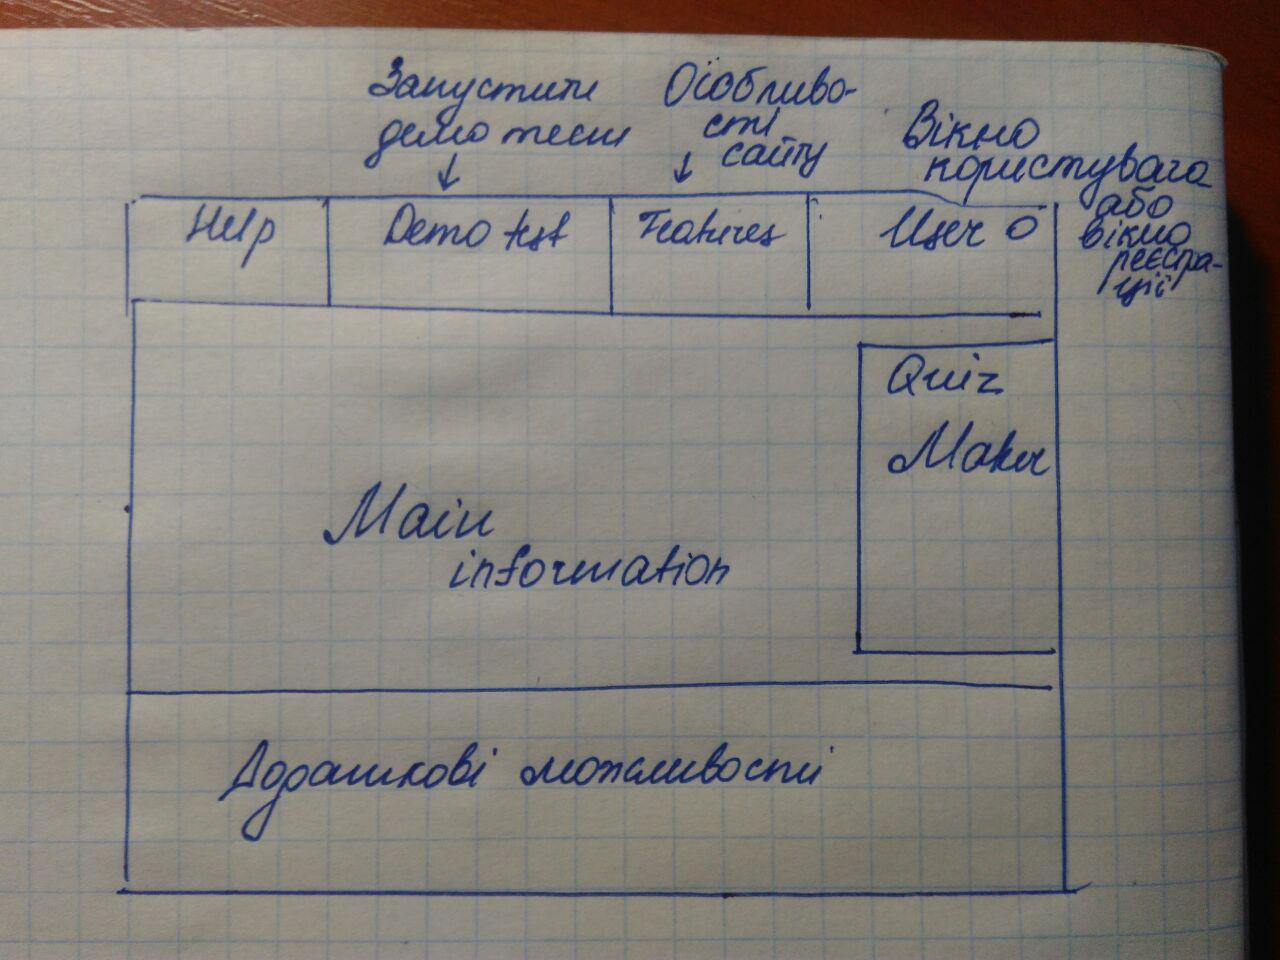 Запустити
демо тест
Особливо-
сті
сайту
Вікно
користувача
або
вікно
реєстра-
ції
Help
Demo test
Features
User O
Quiz
Maker
Main
information
Додаткові можливості